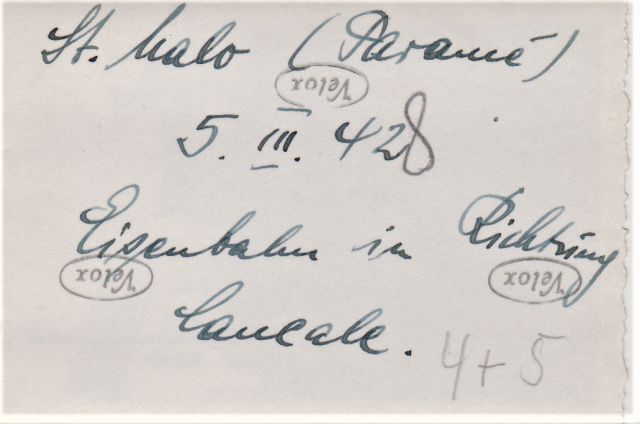 St. Malo (Paramé)
Velox
5. III. 42 8
Eisenbahn in Richtung
Velox Velox
Cancale.
4 + 5